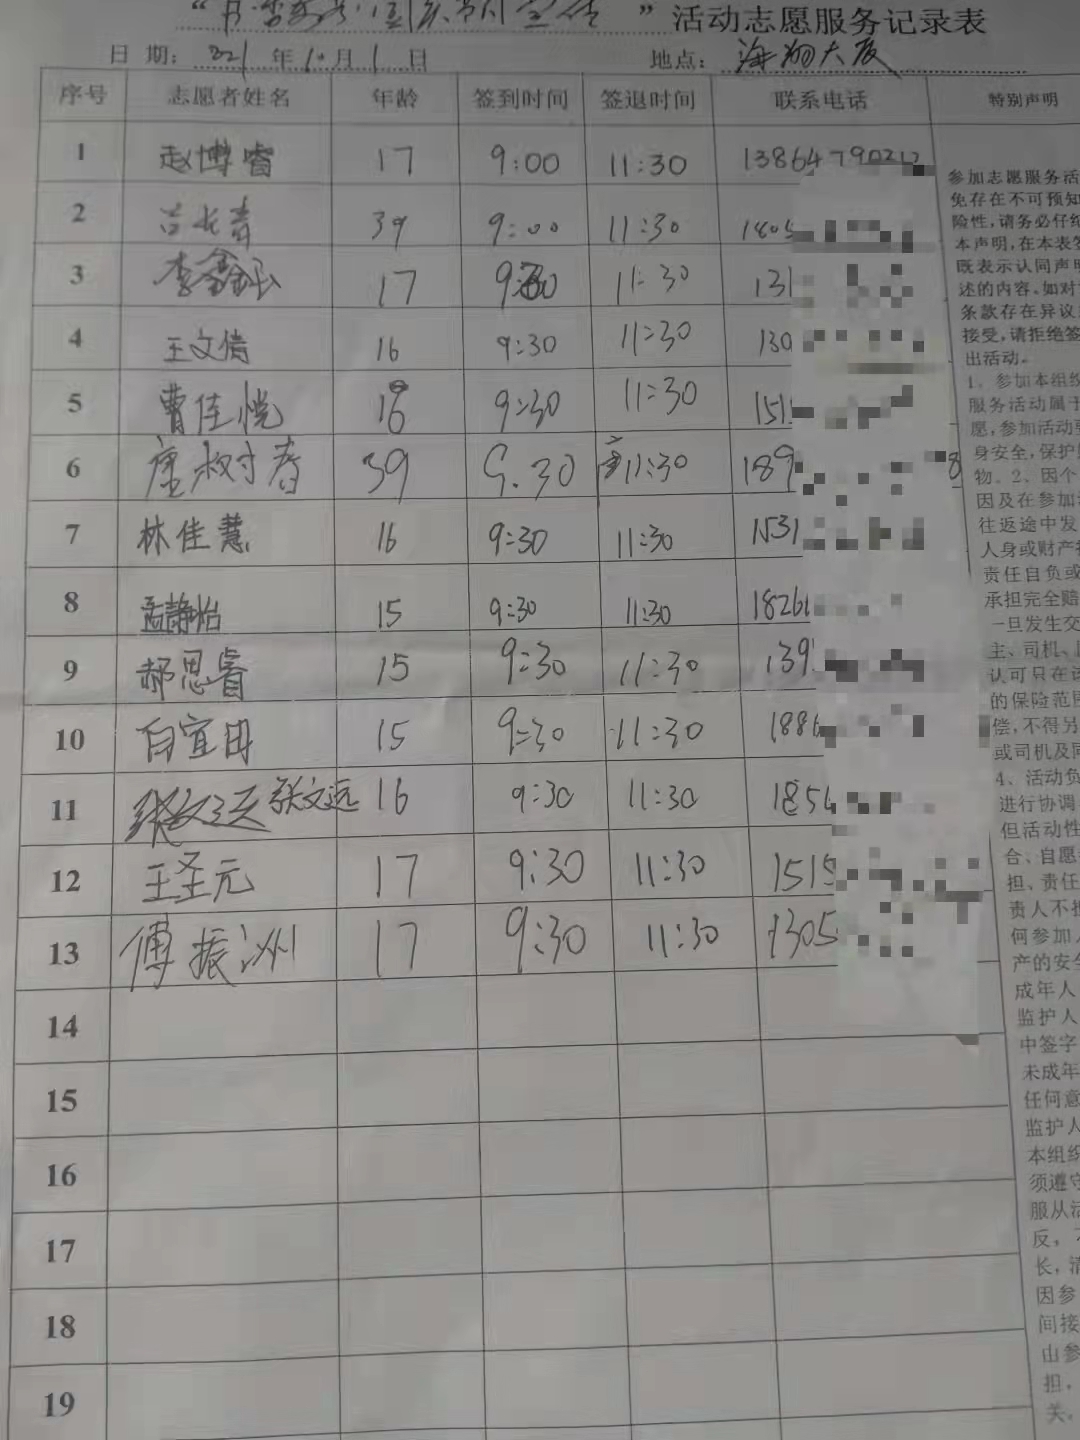 活动志愿服务记录表
日 期: 2021 年 10 月 1 日 地点: 海翔大厦
序号 志愿者姓名 年龄 签到时间 签退时间 联系电话 特别声明
1 赵博睿 17 9:00 11:30 13864790217
2 吕长青 39 9:00 11:30 1805
3 李鑫钰 17 9:30 11:30 131
4 王文倩 16 9:30 11:30 130
5 曹佳悦 16 9:30 11:30 151
6 唐淑春 39 9:30 11:30 189 8
7 林佳慧 16 9:30 11:30 1531
8 孟静怡 15 9:30 11:30 1826
9 郝思睿 15 9:30 11:30 139
10 白宜田 15 9:30 11:30 188
11 张文远 16 9:30 11:30 185
12 王圣元 17 9:30 11:30 1515
13 傅振洲 17 9:30 11:30 1305
14
15
16
17
18
19
参加志愿服务活
免存在不可预知
险性,请务必仔细
本声明,在本表签
既表示认同声明
述的内容。如对
条款存在异议
接受,请拒绝签
出活动。
1、参加本组织
服务活动属于
愿,参加活动
身安全,保护
物。2、因个
因及在参加
往返途中发
人身或财产
责任自负或
承担完全赔
一旦发生交
主、司机、
认可只在
的保险范围
偿,不得另
或司机及同
4、活动负
进行协调
但活动性
合、自愿
担、责任
责人不担
何参加人
产的安全
成年人
监护人
中签字
未成年
任何意
监护人
本组织
须遵守
服从活
反,
长,清
因参
间接
山参
担,
关,